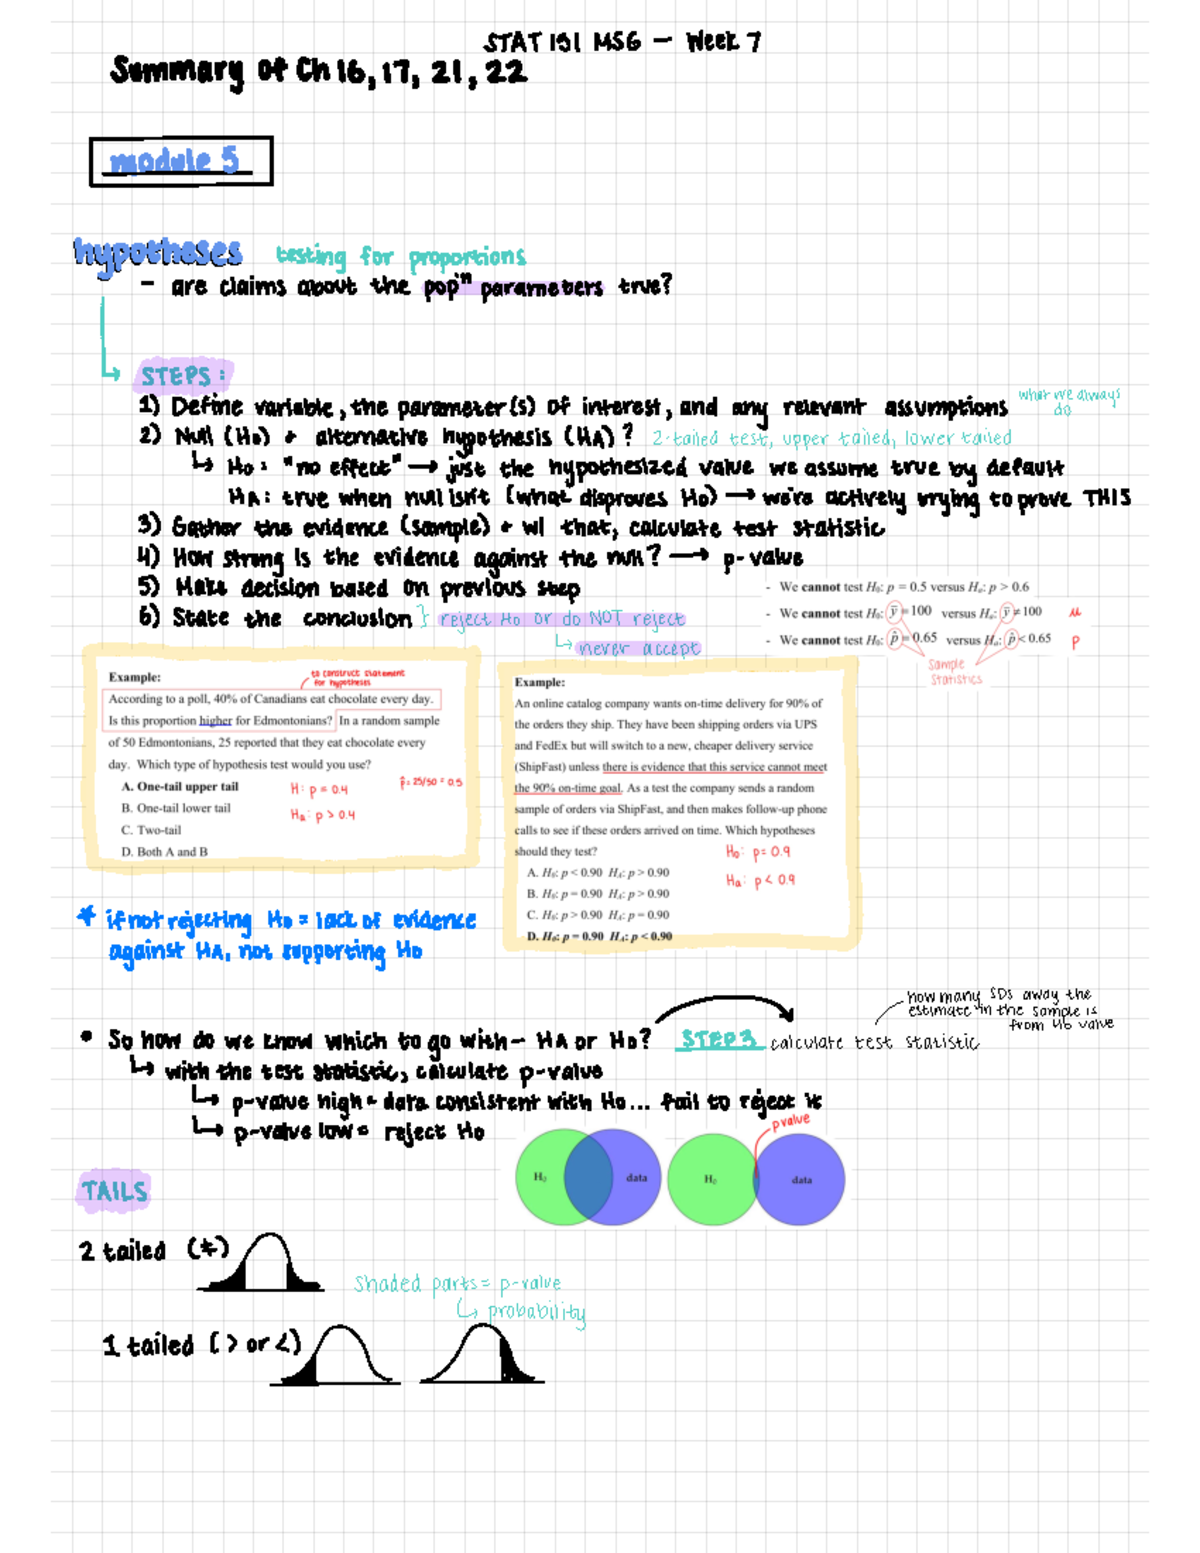 STAT 151 MSG – Week 7
Summary of Ch 16, 17, 21, 22
module 5
hypotheses testing for proportions
- are claims about the pop'n parameters true?
STEPS:
1) Define variable, the parameter(s) of interest, and any relevant assumptions what we always do
2) Null (H0) + alternative hypothesis (HA)? 2-tailed test, upper tailed, lower tailed
↳ H0: "no effect" → just the hypothesized value we assume true by default
HA: true when null isn't (what disproves H0) → we're actively trying to prove THIS
3) Gather the evidence (sample) + w/ that, calculate test statistic
4) How strong is the evidence against the null? → p-value
5) Make decision based on previous step
6) State the conclusion } reject H0 or do NOT reject
↳ never accept
- We cannot test H0: p = 0.5 versus Ha: p > 0.6
- We cannot test H0: ȳ = 100 versus Ha: ȳ ≠ 100 μ
- We cannot test H0: p̂ = 0.65 versus Ha: p̂ < 0.65 p
Sample
Statistics
Example:
to construct statement
for hypothesis
According to a poll, 40% of Canadians eat chocolate every day.
Is this proportion higher for Edmontonians? In a random sample
of 50 Edmontonians, 25 reported that they eat chocolate every
day. Which type of hypothesis test would you use?
A. One-tail upper tail
B. One-tail lower tail
C. Two-tail
D. Both A and B
H: p = 0.4
Ha: p > 0.4
p̂ = 25/50 = 0.5
Example:
An online catalog company wants on-time delivery for 90% of
the orders they ship. They have been shipping orders via UPS
and FedEx but will switch to a new, cheaper delivery service
(ShipFast) unless there is evidence that this service cannot meet
the 90% on-time goal. As a test the company sends a random
sample of orders via ShipFast, and then makes follow-up phone
calls to see if these orders arrived on time. Which hypotheses
should they test?
A. H0: p < 0.90 HA: p > 0.90
B. H0: p = 0.90 HA: p > 0.90
C. H0: p > 0.90 HA: p = 0.90
D. H0: p = 0.90 HA: p < 0.90
H0: p = 0.9
Ha: p < 0.9
* if not rejecting H0 = lack of evidence
against HA, not supporting H0
• So how do we know which to go with – HA or H0? STEP 3 calculate test statistic
how many SDs away the
estimate in the sample is
from H0 value
↳ with the test statistic, calculate p-value
↳ p-value high = data consistent with H0... fail to reject it
↳ p-value low = reject H0
pvalue
H0 data H0 data
TAILS
2 tailed (≠)
shaded parts = p-value
↳ probability
1 tailed (> or <)